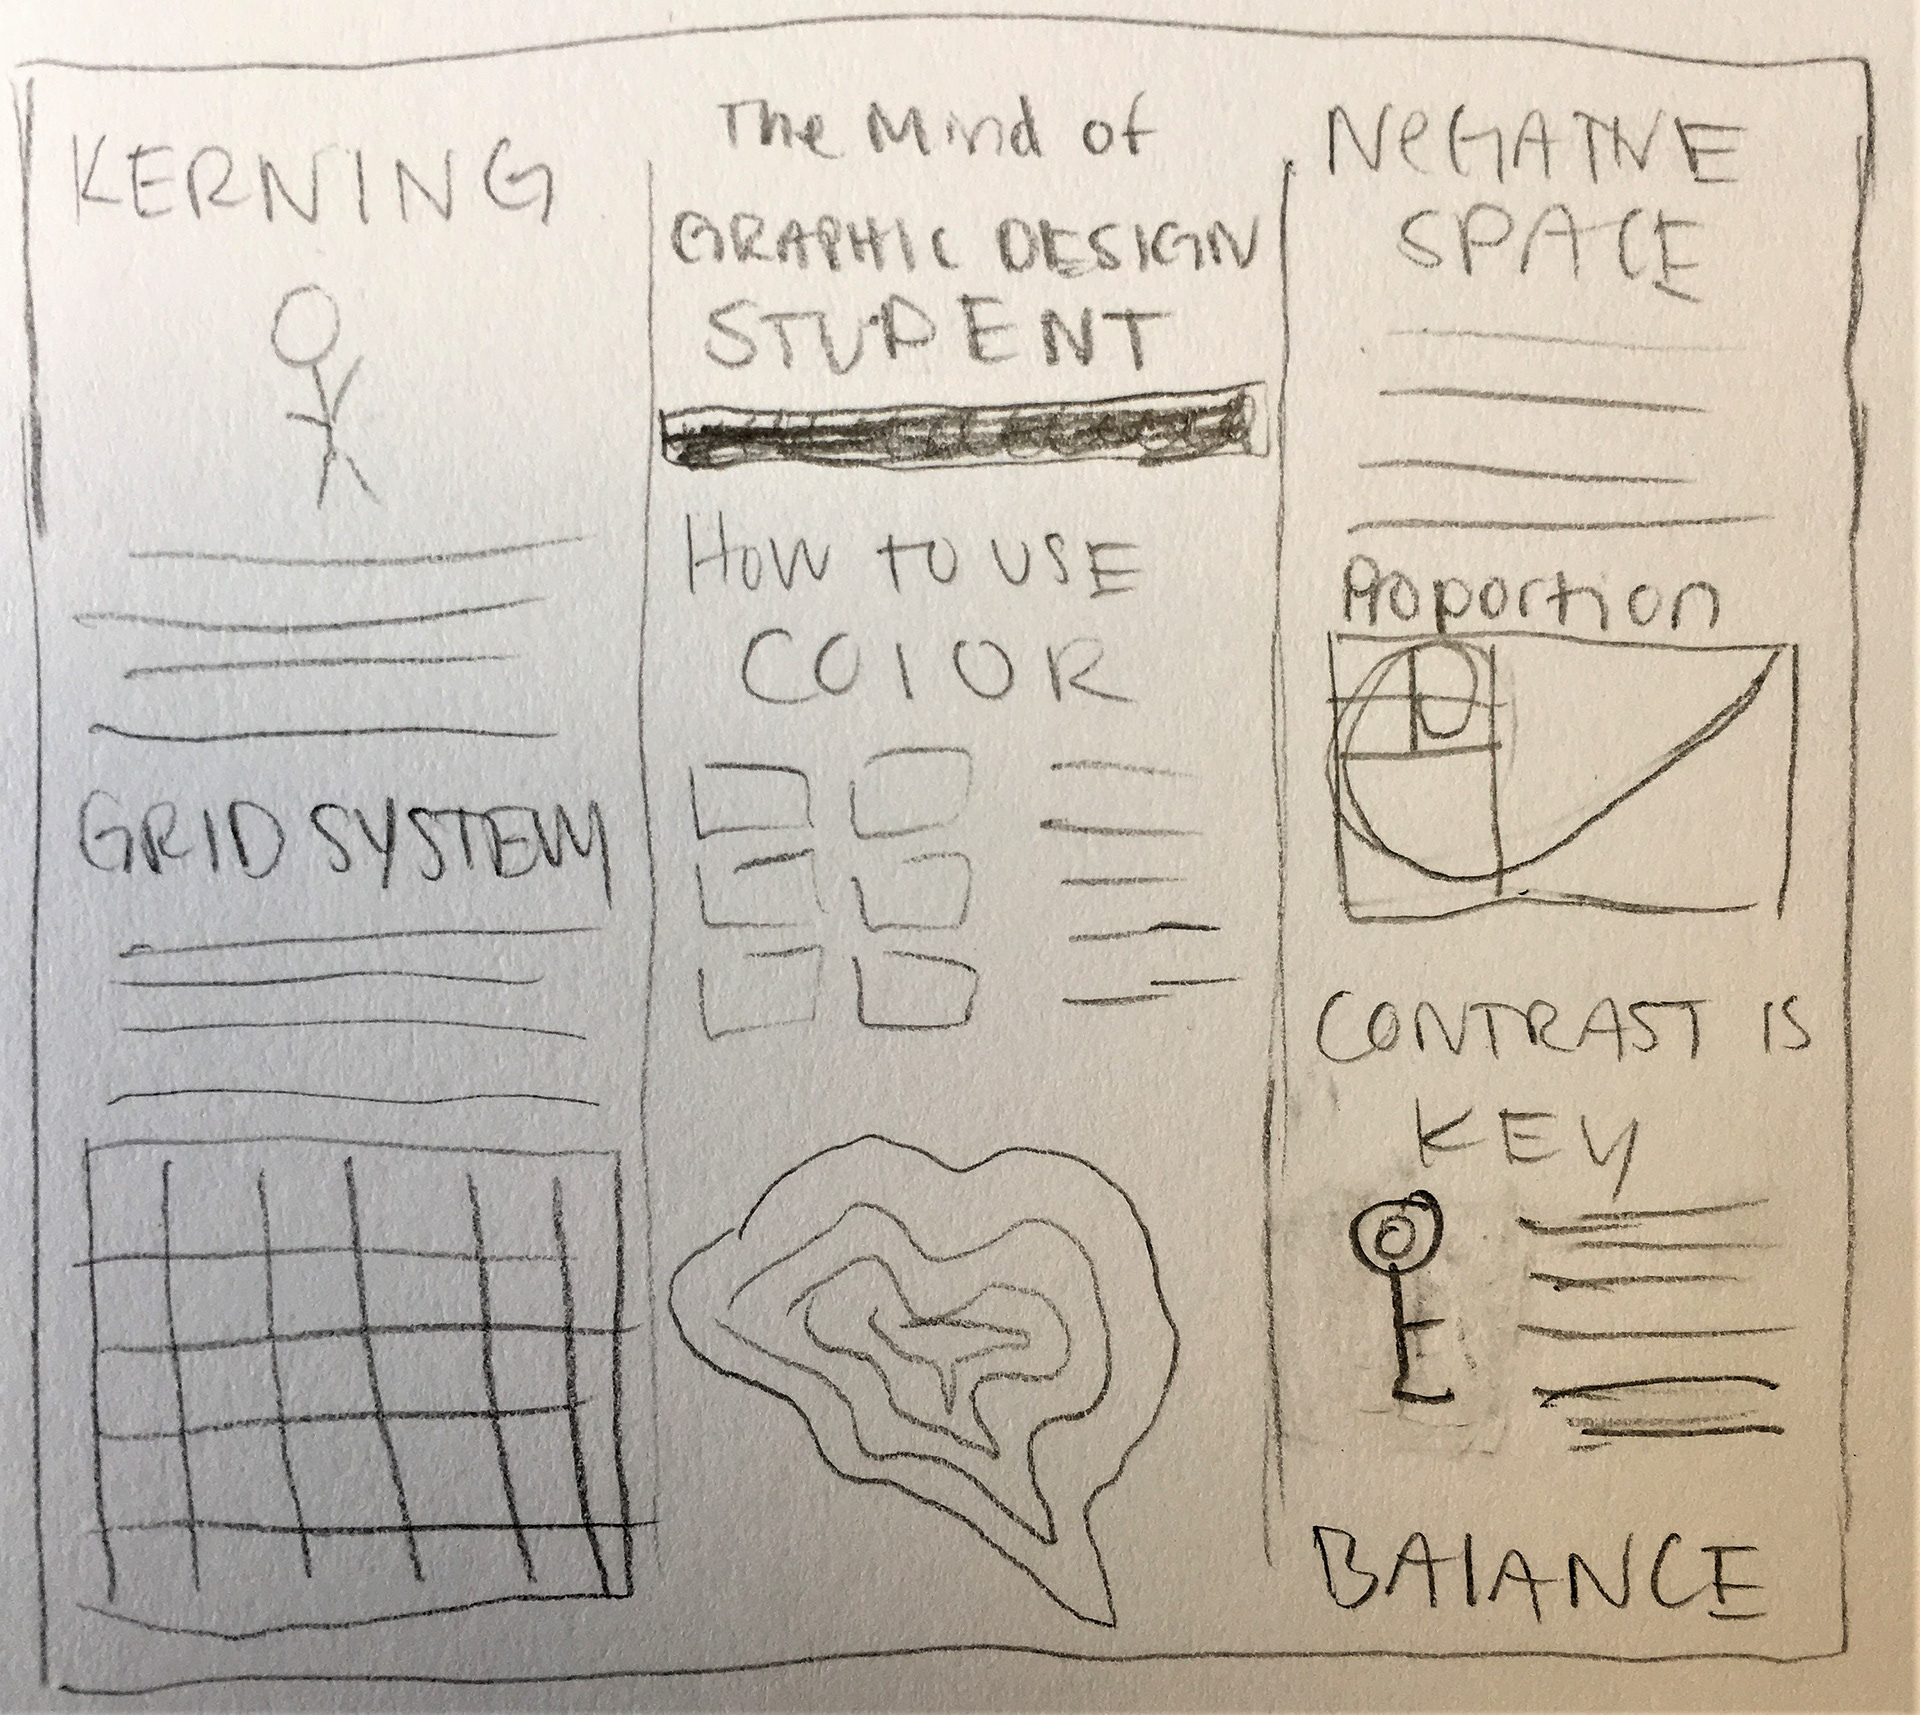 KERNING
GRID SYSTEM
The Mind of
GRAPHIC DESIGN
STUDENT
HOW TO USE
COlOR
NeGATIVE
SPACE
Proportion
CONTRAST IS
KEY
BAlANCE